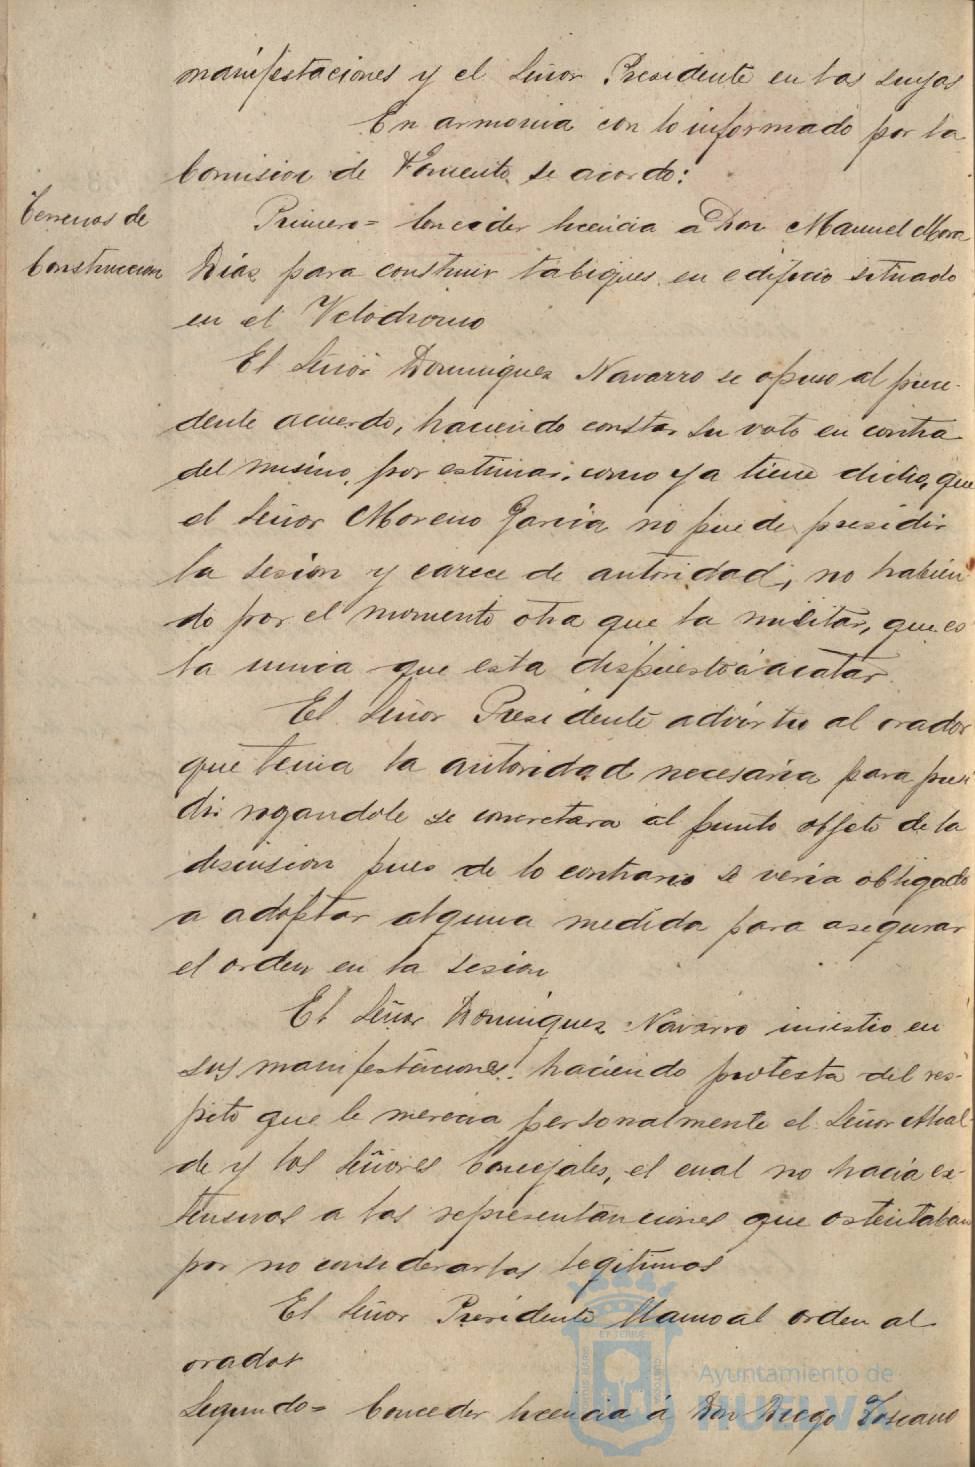 manifestaciones y el Señor Presidente en las suyas
En armonia con lo informado por la
Comision de Fomento se acordo:
Terrenos de
Construccion
Primero= Conceder licencia a Don Manuel Mora
Diaz para construir tabiques en edificio situado
en el Velodromo
El Señor Dominguez Navarro se opuso al prece-
dente acuerdo, haciendo constar su voto en contra
del mismo, por estimar, como ya tiene dicho, que
el Señor Moreno Garcia no puede presidir
la sesion y carece de autoridad, no habien
do por el momento otra que la militar, que es
la unica que esta dispuesto á acatar.
El Señor Presidente advirtio al orador
que tenia la autoridad necesaria para presi
dir rogandole se concretara al punto objeto de la
discusion pues de lo contrario se veria obligado
a adoptar alguna medida para asegurar
el orden en la sesion
El Señor Dominguez Navarro insistio en
sus manifestaciones, haciendo protesta del res-
peto que le merecia personalmente el Señor Alcal-
de y los Señores Concejales, el cual no hacia ex-
tensivos a las representaciones que ostentaban
por no considerarlas legitimas
El Señor Presidente llamo al orden al
orador
Segundo= Conceder licencia á Don Diego Toscano
Ayuntamiento de
HUELVA